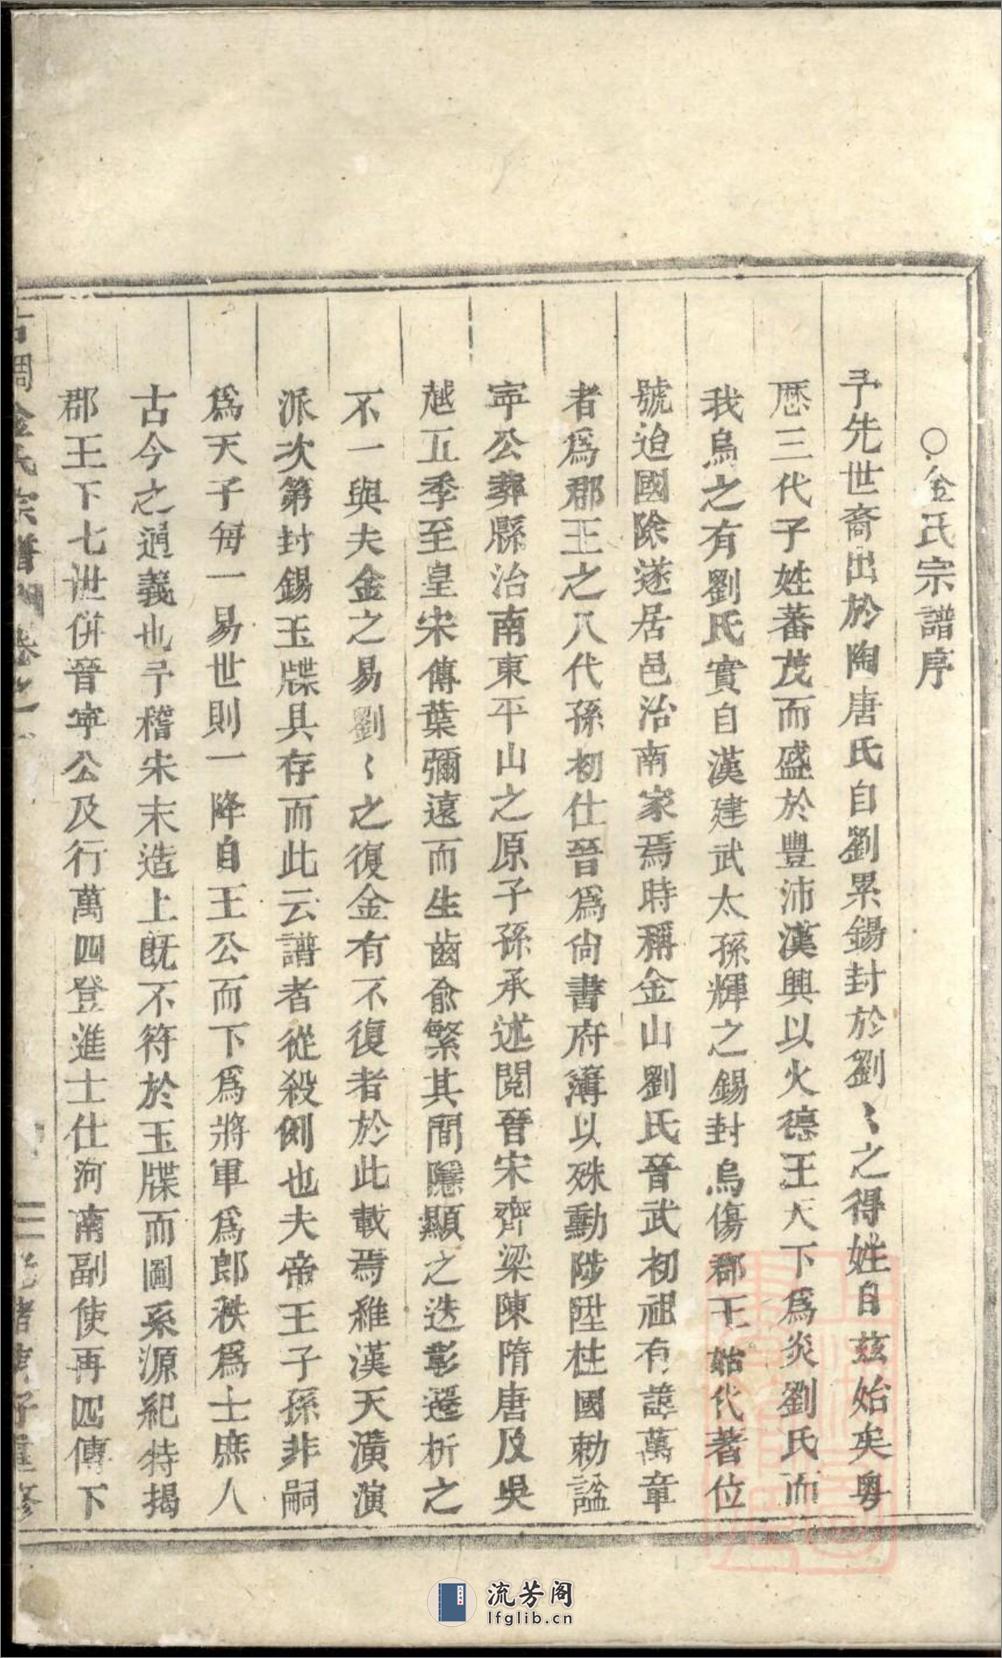 ○金氏宗譜序
予先世裔出於陶唐氏自劉累錫封於劉〻之得姓自茲始矣粵
歷三代子姓蕃茂而盛於豐沛漢興以火德王天下爲炎劉氏而
我烏之有劉氏實自漢建武太孫輝之錫封烏傷郡王始代著位
號迨國除遂居邑治南家焉時稱金山劉氏晉武初祖有諱萬章
者爲郡王之八代孫初仕晉爲尙書府簿以殊勳陟陞柱國勅諡
寜公葬縣治南東平山之原子孫承述閱晉宋齊梁陳隋唐及吳
越五季至皇宋傳葉彌遠而生齒俞繁其間隱顯之迭彰遷析之
不一與夫金之易劉〻之復金有不復者於此載焉維漢天潢演
派次第封錫玉牒具存而此云譜者從殺例也夫帝王子孫非嗣
爲天子每一易世則一降自王公而下爲將軍爲郎秩爲士庶人
古今之通義也予稽宋末造上旣不符於玉牒而圖系源紀特揭
郡王下七世併晉寜公及行萬四登進士仕河南副使再四傳下
金氏宗譜 卷之一 光緒 子重修
流芳阁
lfglib.cn